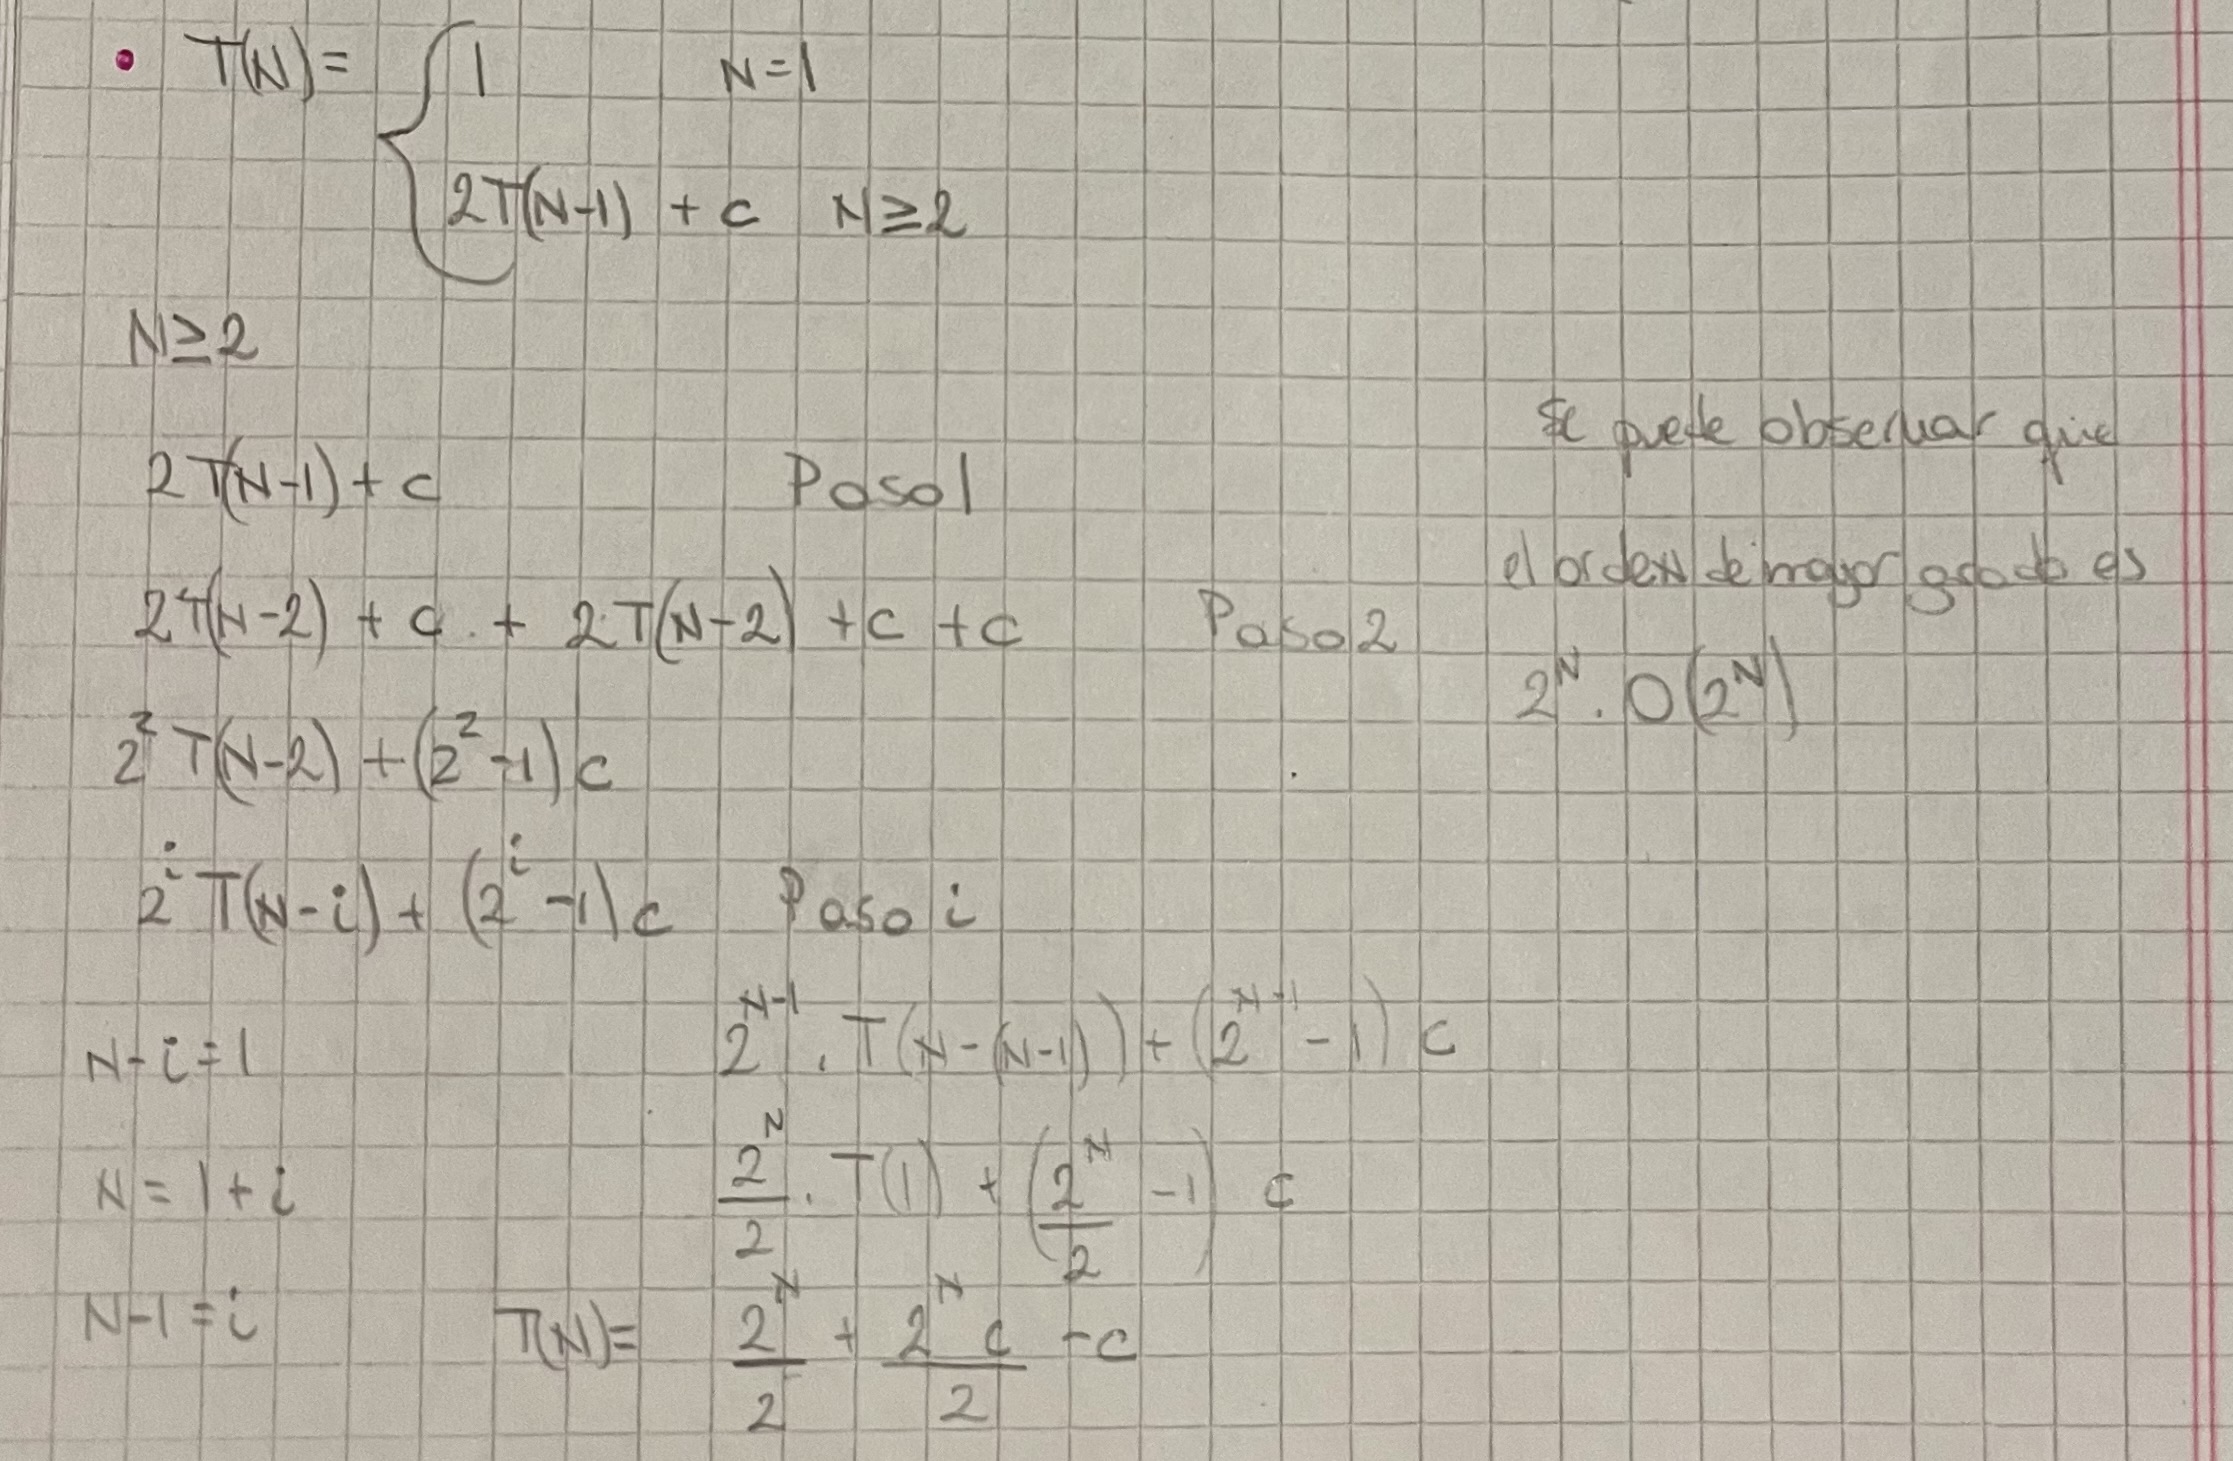 • T(N) = { 1 N=1
2T(N-1) + c N≥2
N≥2
2T(N-1) + c Paso 1
2T(N-2) + c + 2T(N-2) + c + c Paso 2
2² T(N-2) + (2² -1) c
2ⁱ T(N-i) + (2ⁱ -1) c Paso i
N-i=1
N = 1+i
N-1 = i
2ᴺ⁻¹ . T(N-(N-1)) + (2ᴺ⁻¹ - 1) c
2ᴺ/2 . T(1) + (2ᴺ/2 - 1) c
T(N) = 2ᴺ/2 + 2ᴺ c/2 - c
Se puede observar que
el orden de mayor grado es
2ᴺ . O(2ᴺ)